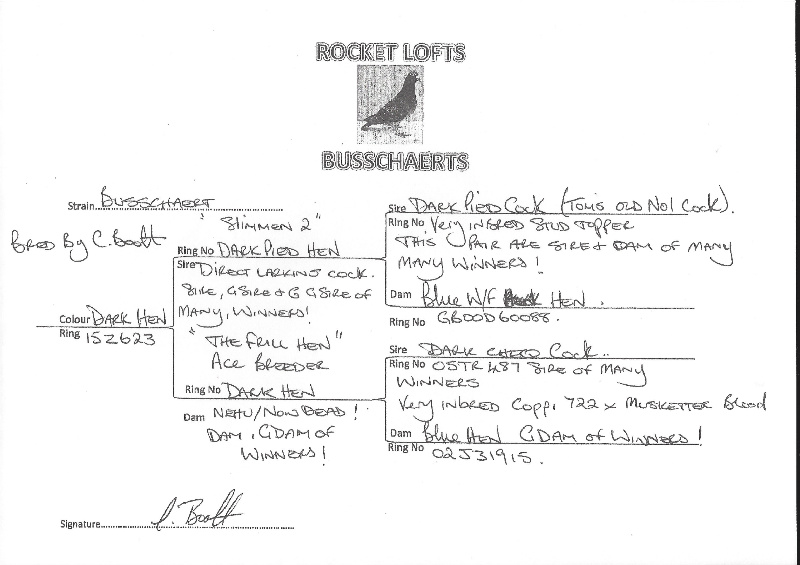 ROCKET LOFTS
BUSSCHAERTS
Strain BUSSCHAERT
Bred By C. Boott
"Slimmen 2"
Ring No DARK PIED HEN
Sire DIRECT LARKINS COCK.
SIRE, GSIRE & G GSIRE OF
MANY, WINNERS!
Colour DARK HEN
Ring 15Z623
"THE FRILL HEN"
ACE BREEDER
Ring No DARK HEN
Dam NEHU/NOW DEAD!
DAM, GDAM OF
WINNERS!
Sire DARK PIED COCK (TOM'S OLD NO1 COCK).
Ring No Very INBRED STUD TOPPER
THIS PAIR ARE SIRE & DAM OF MANY
MANY WINNERS!
Dam Blue W/F HEN.
Ring No GB00D60088.
Sire DARK CHEQ COCK..
Ring No OSTR 487 SIRE OF MANY
WINNERS
Very INBRED COPPI 722 x MUSKETTER Blood
Dam Blue HEN GDAM OF WINNERS!
Ring No 02J31915.
Signature C. Boott